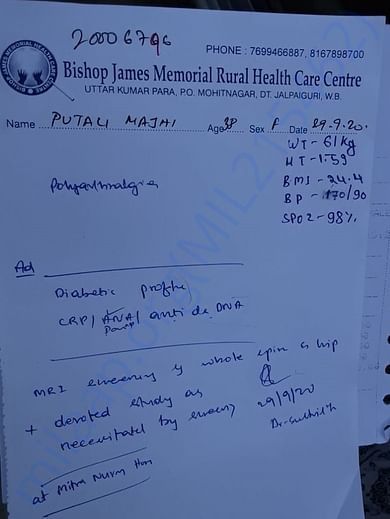 20006796
BISHOP JAMES MEMORIAL HEALTH CARE CENTRE
PHONE : 7699466887, 8167898700
Bishop James Memorial Rural Health Care Centre
UTTAR KUMAR PARA, P.O. MOHITNAGAR, DT. JALPAIGURI, W.B.
Name PUTALI MAJHI Age 38 Sex F Date 29.9.20.
WT - 61 Kg
HT - 1.59
BMI - 24.4
BP - 170/90
SPO2 - 98%
Polyarthralgia
Ad
Diabetic profile
CRP / ANA / anti ds DNA
MRI screening of whole spine & hip
+ devoted study as
necessitated by screening
29/9/20
at Mitra Nursing Hom